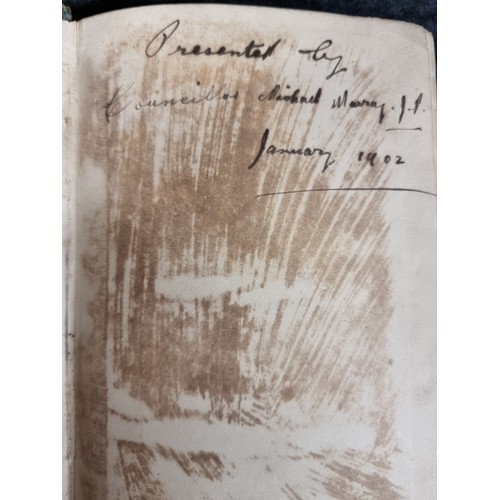 Presented by
Councillor Michael Murray. J.P.
January 1902